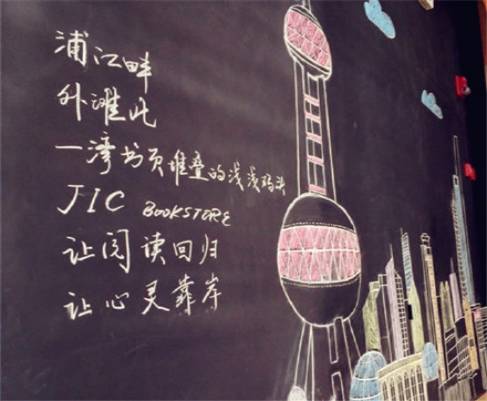 浦江畔
外滩此
一湾书页堆叠的浅浅码头
JIC BOOKSTORE
让阅读回归
让心灵靠岸